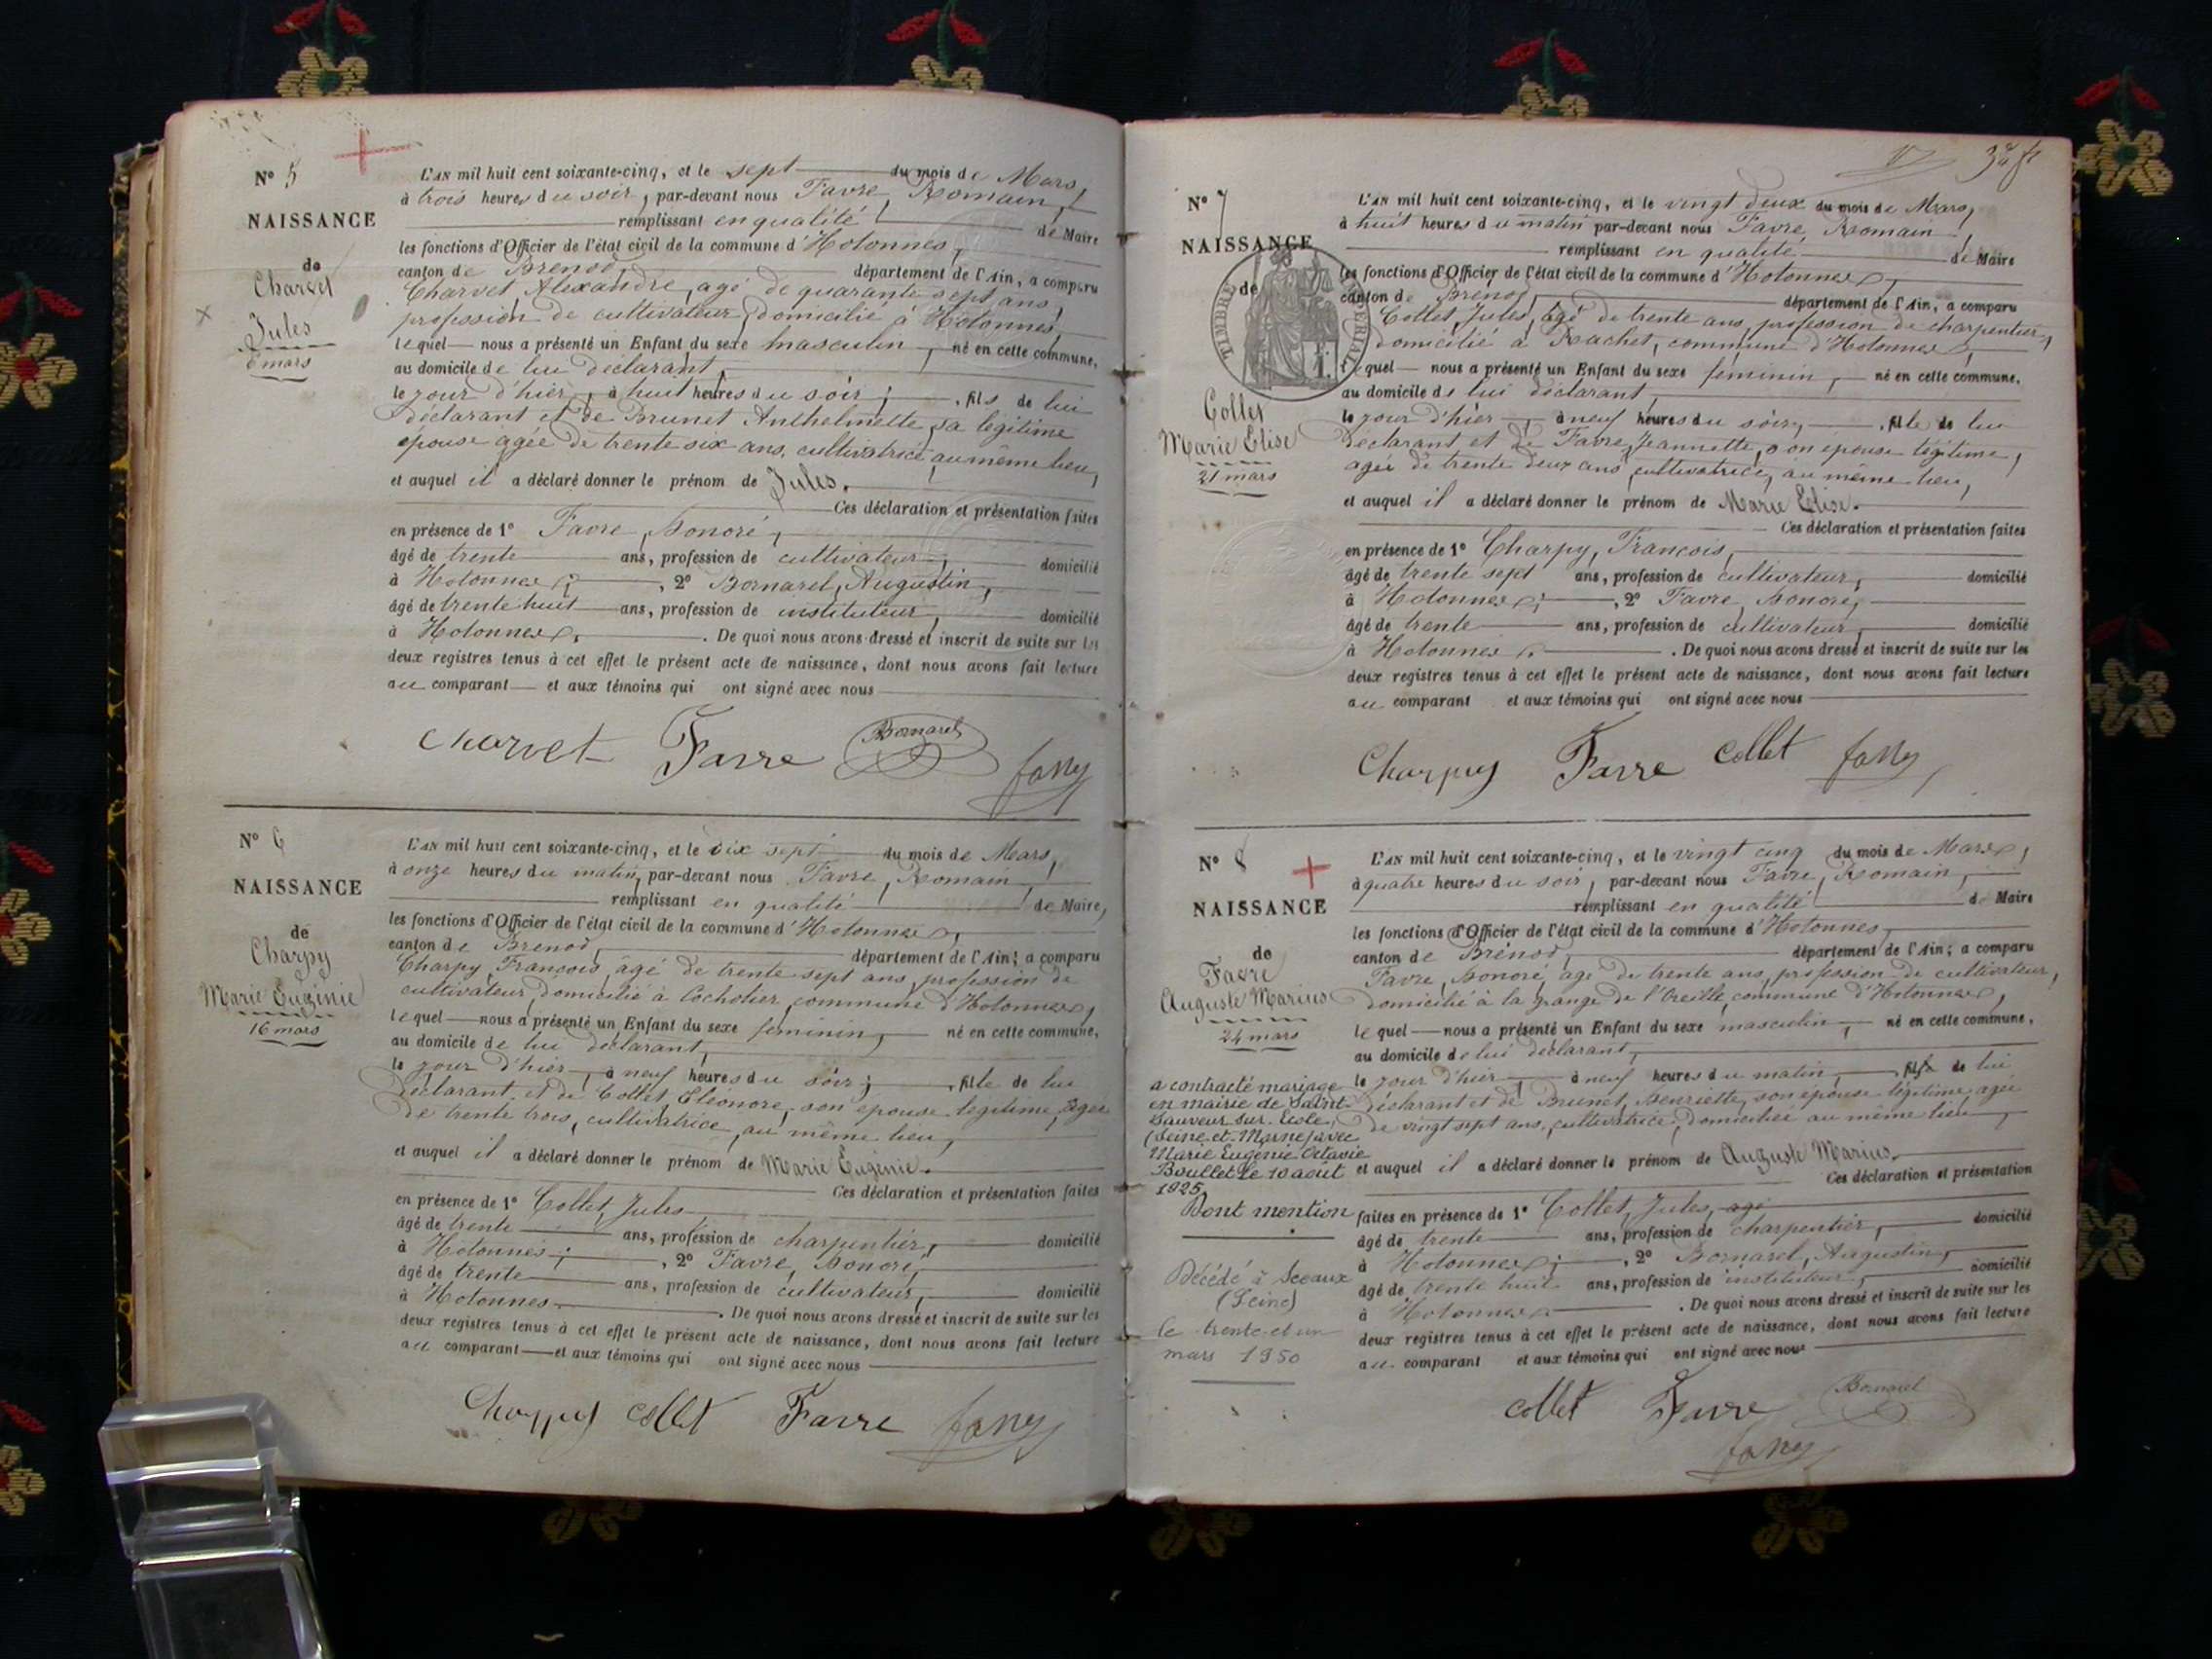 N° 5
NAISSANCE
de
Charvet
Jules
6 mars
L'AN mil huit cent soixante-cinq, et le sept du mois de Mars,
à trois heures du soir, par-devant nous Favre, Romain,
remplissant en qualité de Maire
les fonctions d'Officier de l'état civil de la commune d'Hotonnes,
canton de Brenod, département de l'Ain, a comparu
Charvet Alexandre, agé de quarante sept ans,
profession de cultivateur, domicilié à Hotonnes,
lequel nous a présenté un Enfant du sexe masculin, né en cette commune,
au domicile de lui déclarant,
le jour d'hier, à huit heures du soir; fils de lui
déclarant et de Brunet Anthelmette, sa légitime
épouse agée de trente six ans, cultivatrice, au même lieu,
et auquel il a déclaré donner le prénom de Jules.
Ces déclaration et présentation faites
en présence de 1° Favre, Honoré,
âgé de trente ans, profession de cultivateur, domicilié
à Hotonnes; , 2° Bornarel, Augustin,
âgé de trente huit ans, profession de instituteur, domicilié
à Hotonnes. . De quoi nous avons dressé et inscrit de suite sur les
deux registres tenus à cet effet le présent acte de naissance, dont nous avons fait lecture
au comparant et aux témoins qui ont signé avec nous
Charvet Favre Bornarel
N° 6
NAISSANCE
de
Charpy
Marie Eugénie
16 mars
L'AN mil huit cent soixante-cinq, et le dix sept du mois de Mars,
à onze heures du matin, par-devant nous Favre, Romain,
remplissant en qualité de Maire,
les fonctions d'Officier de l'état civil de la commune d'Hotonnes,
canton de Brenod, département de l'Ain; a comparu
Charpy, François, âgé de trente sept ans, profession de
cultivateur, domicilié à commune d'Hotonnes,
lequel nous a présenté un Enfant du sexe féminin, né en cette commune,
au domicile de lui déclarant,
le jour d'hier, à neuf heures du soir; , fille de lui
déclarant, et de Collet, Eléonore, son épouse légitime, agée
de trente trois, cultivatrice, au même lieu,
et auquel il a déclaré donner le prénom de Marie Eugénie.
Ces déclaration et présentation faites
en présence de 1° Collet, Jules
âgé de trente ans, profession de charpentier, domicilié
à Hotonnes; , 2° Favre, Honoré,
âgé de trente ans, profession de cultivateur, domicilié
à Hotonnes. . De quoi nous avons dressé et inscrit de suite sur les
deux registres tenus à cet effet le présent acte de naissance, dont nous avons fait lecture
au comparant et aux témoins qui ont signé avec nous
Charpy collet Favre
N° 7
NAISSANCE
de
TIMBRE IMPERIAL
Collet
Marie Elise
21 mars
L'AN mil huit cent soixante-cinq, et le vingt deux du mois de Mars,
à huit heures du matin par-devant nous Favre, Romain,
remplissant en qualité de Maire
les fonctions d'Officier de l'état civil de la commune d'Hotonnes,
canton de Brenod, département de l'Ain, a comparu
Collet, Jules, âgé de trente ans, profession de charpentier,
domicilié à Rachet, commune d'Hotonnes,
lequel nous a présenté un Enfant du sexe féminin, né en cette commune,
au domicile de lui déclarant,
le jour d'hier, à neuf heures du soir, , fille de lui
déclarant et de Favre, Jeannette, son épouse légitime,
agée de trente deux ans, cultivatrice, au même lieu,
et auquel il a déclaré donner le prénom de Marie Elise.
Ces déclaration et présentation faites
en présence de 1° Charpy, François,
âgé de trente sept ans, profession de cultivateur, domicilié
à Hotonnes; , 2° Favre, Honoré,
âgé de trente ans, profession de cultivateur, domicilié
à Hotonnes. . De quoi nous avons dressé et inscrit de suite sur les
deux registres tenus à cet effet le présent acte de naissance, dont nous avons fait lecture
au comparant et aux témoins qui ont signé avec nous
Charpy Favre collet
N° 8
NAISSANCE
de
Favre
Auguste Marius
24 mars
a contracté mariage
en mairie de Saint-
Sauveur sur Ecole,
(Seine-et-Marne) avec
Marie Eugénie Octavie
Boullet le 10 août
1925,
Dont mention
Décédé à Sceaux
(Seine)
le trente et un
mars 1950
L'AN mil huit cent soixante-cinq, et le vingt cinq du mois de Mars,
à quatre heures du soir, par-devant nous Favre, Romain,
remplissant en qualité de Maire
les fonctions d'Officier de l'état civil de la commune d'Hotonnes,
canton de Brénod, département de l'Ain; a comparu
Favre, Honoré, âgé de trente ans, profession de cultivateur,
domicilié à la grange de l'Oreille, commune d'Hotonnes,
lequel nous a présenté un Enfant du sexe masculin, né en cette commune,
au domicile de lui déclarant,
le jour d'hier, à neuf heures du matin, , fils de lui
déclarant et de Brunet, Henriette, son épouse légitime, agée
de vingt sept ans, cultivatrice, domiciliée au même lieu,
et auquel il a déclaré donner le prénom de Auguste Marius.
Ces déclaration et présentation
faites en présence de 1° Collet, Jules, agé
âgé de trente ans, profession de charpentier, domicilié
à Hotonnes; , 2° Bornarel, Augustin,
âgé de trente huit ans, profession de instituteur, domicilié
à Hotonnes. . De quoi nous avons dressé et inscrit de suite sur les
deux registres tenus à cet effet le présent acte de naissance, dont nous avons fait lecture
au comparant et aux témoins qui ont signé avec nous
collet Favre Bornarel